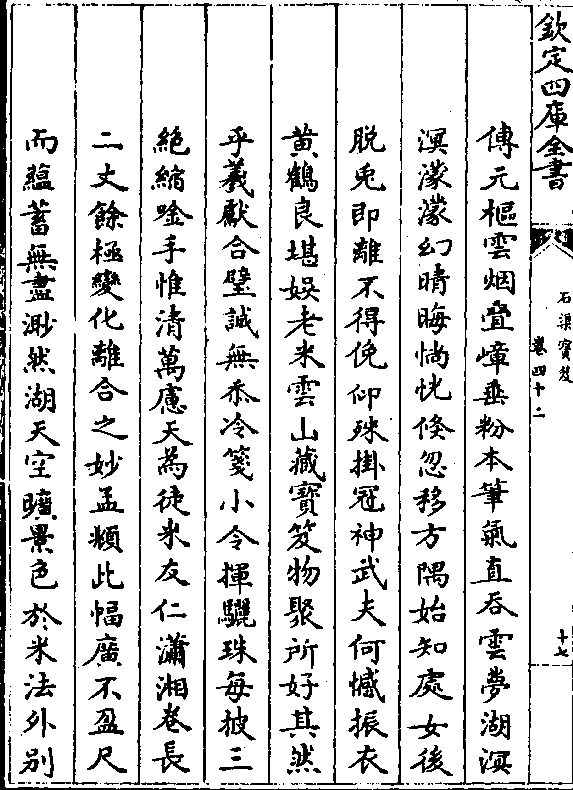 欽定四庫全書
石渠寶笈
卷四十二
十七
傳元樞雲烟疊嶂垂粉本筆氣直吞雲夢湖溟
溟濛濛幻晴晦惝恍倏忽移方隅始知處女後
脱兎即離不得俛仰殊掛冠神武夫何憾振衣
黄鶴良堪娛老米雲山藏寶笈物聚所好其然
乎羲獻合璧誠無忝冷箋小令揮驪珠每披三
絶縮唫手惟清萬慮天為徒米友仁瀟湘卷長
二丈餘極變化離合之妙孟頫此幅廣不盈尺
而藴蓄無盡渺然湖天空曠景色於米法外别